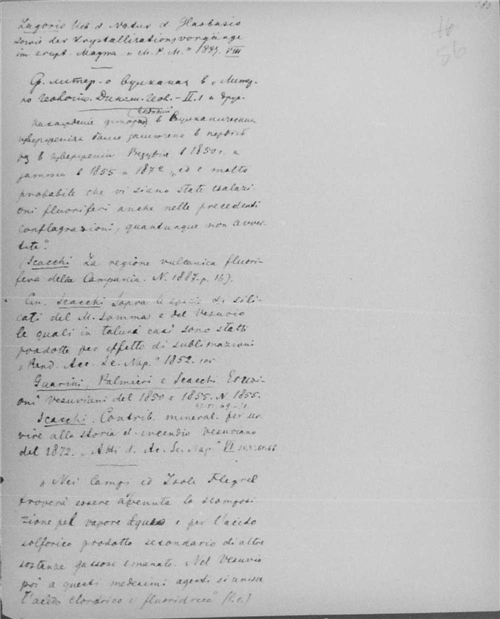 Lagorio Ueb. d. Natur d. Glasbasis
sowie der Krystallisationsvorgänge
im erupt. Magma "M. P. M." 1887. VIII
16
56
Ср. литер. о вулканах в "
Geologie. II.1 и друг.
в вулканических
было замечено в первой
раз в извержении Везувия в 1850 г. и
затем в 1855 и 1872 "ed è molto
probabile che vi siano stati esalazi
oni fluoriferi anche nelle precedenti
conflagrazioni, quantunque non avver
tite".
(Scacchi La regione vulcanica fluori-
fera della Campania. N. 1887. p. 15).
Cm. Scacchi Sopra le specie di sili-
cati del M. Somma e del Vesuvio
le quali in taluni casi sono state
prodotte per effetto di sublimazioni
"Rend. Acc. Sc. Nap." 1852.
Guarini, Palmieri e Scacchi Eruzi-
oni Vesuviani del 1850 e 1855. N. 1855.
Scacchi. Contrib. mineral. per ser-
vire alla storia d. incendio Vesuviano
del 1872. "Atti d. Ac. Sc. Nap." VI
"Nei Campi ed Isole Flegrei
troverà essere avvenuta la scomposi-
zione pel vapore aqueo e per l'acido
solforico prodotto secondario di altre
sostanze gassose emanate. Nel Vesuvio
poi a questi medesimi agenti si unisce
l'acido cloridrico e fluoridrico" (l.c.)